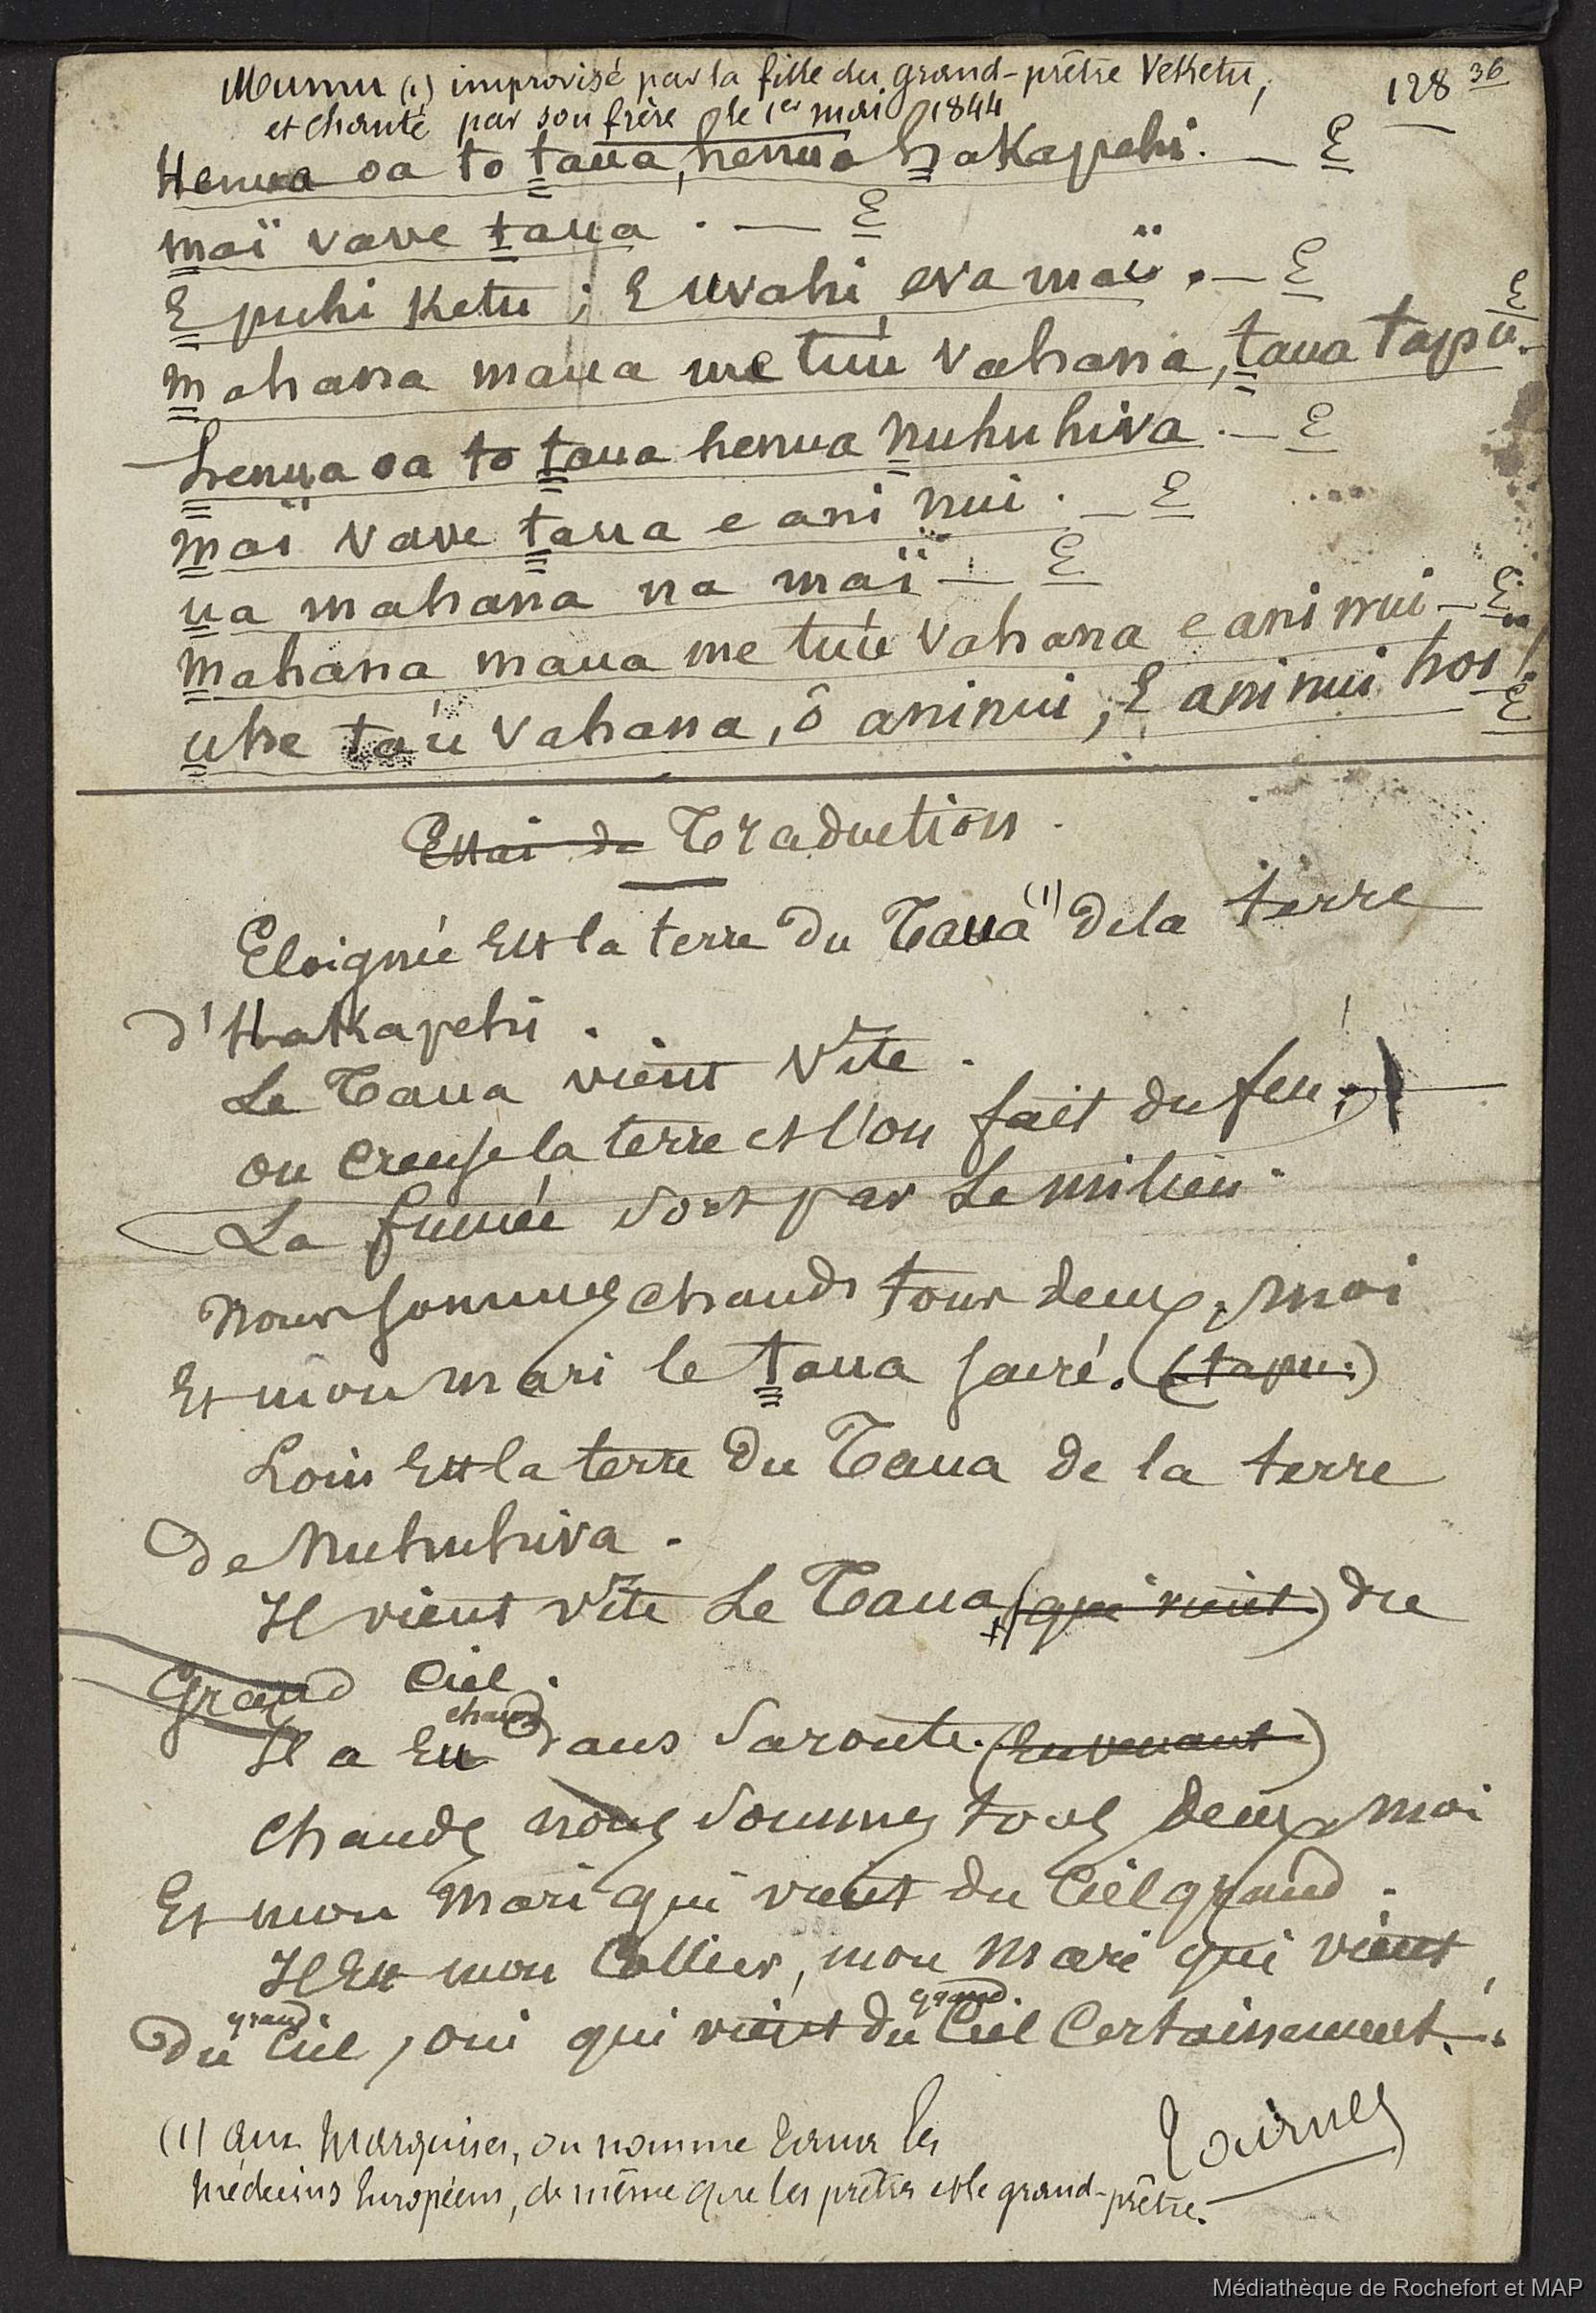 Mumu (1) improvisé par la fille du grand-prêtre Veketu,
128 36
et chanté par son frère le 1er mai 1844
Henua oa to taua, henua hakapehi. — E
maï vave taua. — E
E puhi Ketu; E uvahi eva maï. — E
mahana maua me tuú vahana, taua tapu. — E
henua oa to taua henua nuhuhiva. — E
maï vave taua e ani nui. — E
ua mahana na maï — E
mahana maua me tuú vahana e ani nui — E
uhe taú vahana, ô aninui, E aninui hoi! E
Essai de Traduction.
Eloignée Est la terre du Taua (1) de la terre
d'Hakapehi.
Le Taua vient vîte.
on creuse la terre et l'on fait du feu;
La fumée sort par Le milieu.
Nous sommes chauds tous deux, moi
Et mon mari le taua sacré. (tapu.)
Loin Est la terre du Taua de la terre
de Nuhuhiva.
Il vient vîte Le Taua (qui vient) du
Grand Ciel.
Il a Eu chaud dans sa route. (En venant)
Chauds nous sommes tous deux, moi
Et mon Mari qui vient du Ciel grand.
Il Est mon Collier, mon Mari qui vient
du grand Ciel, oui qui vient du grand Ciel Certainement.
(1) aux Marquises, on nomme taua les
médecins Européens, de même que les prêtres et le grand-prêtre.